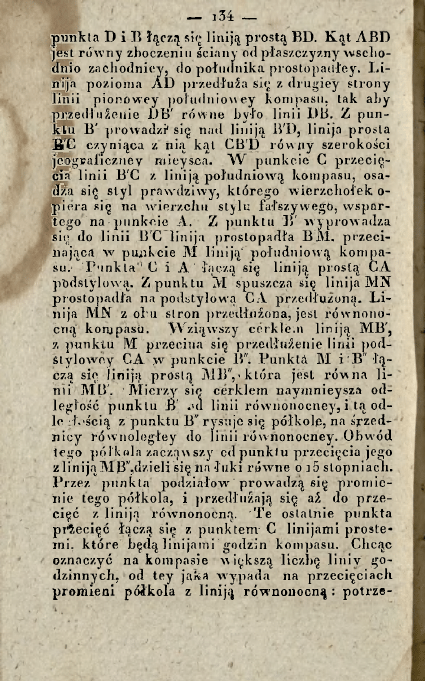 — 134 —
punkta D i B łączą się liniją prostą BD. Kąt ABD
jest równy zboczeniu ściany od płaszczyzny wscho-
dnio zachodnicy, do południka prostopadłey. Li-
nija pozioma AD przedłuża się z drugiey strony
linii pionowey południowey kompasu, tak aby
przedłużenie DB' równe było linii DB. Z pun-
ktu B' prowadzi się nad liniją B'D, linija prosta
B'C czyniąca z nią kąt CB'D równy szerokości
jeograficzney mieysca. W punkcie C przecię-
cia linii B'C z liniją południową kompasu, osa-
dza się styl prawdziwy, którego wierzchołek o-
piera się na wierzchu stylu fałszywego, wspar-
tego na punkcie A. Z punktu B' wyprowadza
się do linii B'C linija prostopadła B'M, przeci-
nająca w punkcie M liniją południową kompa-
su. Punkta C i A łączą się liniją prostą CA
podstylową. Z punktu M spuszcza się linija MN
prostopadła na podstylową CA przedłużoną. Li-
nija MN z obu stron przedłużona, jest równono-
cną kompasu. Wziąwszy cérklem liniją MB',
z punktu M przecina się przedłużenie linii pod-
stylowéy CA w punkcie B". Punkta M i B" łą-
czą się liniją prostą MB", która jest równa li-
nii MB'. Mierzy się cérklem naymnieysza od-
ległość punktu B' od linii równonocney, i tą od-
ległością z punktu B" rysuje się półkole, na śrzed-
nicy równoległey do linii równonocney. Obwód
tego półkola zacząwszy od punktu przecięcia jego
z liniją MB", dzieli się na łuki równe o 15 stopniach.
Przez punkta podziałow prowadzą się promie-
nie tego półkola, i przedłużają się aż do prze-
cięć z liniją równonocną. Te ostatnie punkta
przecięć łączą się z punktem C linijami proste-
mi, które będą linijami godzin kompasu. Chcąc
oznaczyć na kompasie większą liczbę liniy go-
dzinnych, od tey jaka wypada na przecięciach
promieni półkola z liniją równonocną: potrze-